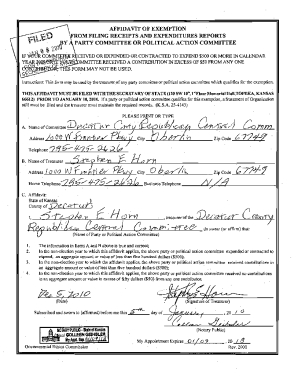 FILED
AFFIDAVIT OF EXEMPTION
FROM FILING RECEIPTS AND EXPENDITURES REPORTS
BY A PARTY COMMITTEE OR POLITICAL ACTION COMMITTEE
IF YOUR COMMITTEE RECEIVED OR EXPENDED OR CONTRACTED TO EXPEND $500 OR MORE IN CALENDAR
YEAR COMMITTEE RECEIVED A CONTRIBUTION IN EXCESS OF $50 FROM ANY ONE
CONTRIBUTOR, THIS FORM MAY NOT BE USED.
Instructions: This form may be used by the treasurer of any party committee or political action committee which qualifies for the exemption.
THIS AFFIDAVIT MUST BE FILED WITH THE SECRETARY OF STATE (120 SW 10th, 1st Floor Memorial Hall, TOPEKA, KANSAS
66612) PRIOR TO JANUARY 10, 2010. If a party or political action committee qualifies for exemption, a Statement of Organization
will must be filed and the treasurer must maintain the required records. (K.S.A. 25-4145)
PLEASE PRINT OR TYPE
A. Name of Committee Decatur Cnty Republican Central Comm
Address 1000 W Frontier Pkwy Oberlin Zip Code 67749
Telephone 785-475-2626
B. Name of Treasurer Stephen E Horn
Address 1000 W Frontier Pkwy Oberlin Zip Code 67749
Home Telephone 785-475-2626 Business Telephone N/A
C. Affidavit:
State of Kansas
County of Decatur
I, Stephen E Horn, treasurer of the Decatur County
Republican Central Committee do swear (or affirm) that
(Name of Party or Political Action Committee)
1. The information in Items A and B above is true and correct;
2. In the non-election year to which this affidavit applies, the above party or political action committee expended or contracted to
expend, an aggregate amount or value of less than five hundred dollars ($500);
3. In the non-election year to which the affidavit applies, the above party or political action committee received contributions
in an aggregate amount or value of less than five hundred dollars ($500); and
4. In the non-election year to which this affidavit applies, the above party or political action committee received no contributions
in an aggregate amount or value in excess of fifty dollars from any one contributor.
5, 2010
(Date)
(Signature of Treasurer)
Subscribed and sworn to (affirmed) before me this 5th day of January, 2010
(Notary Public)
NOTARY PUBLIC - State of Kansas
COLLEEN GEIHSLER
My Appointment Expires 01/09 2013
Governmental Ethics Commission
Rev. 2000